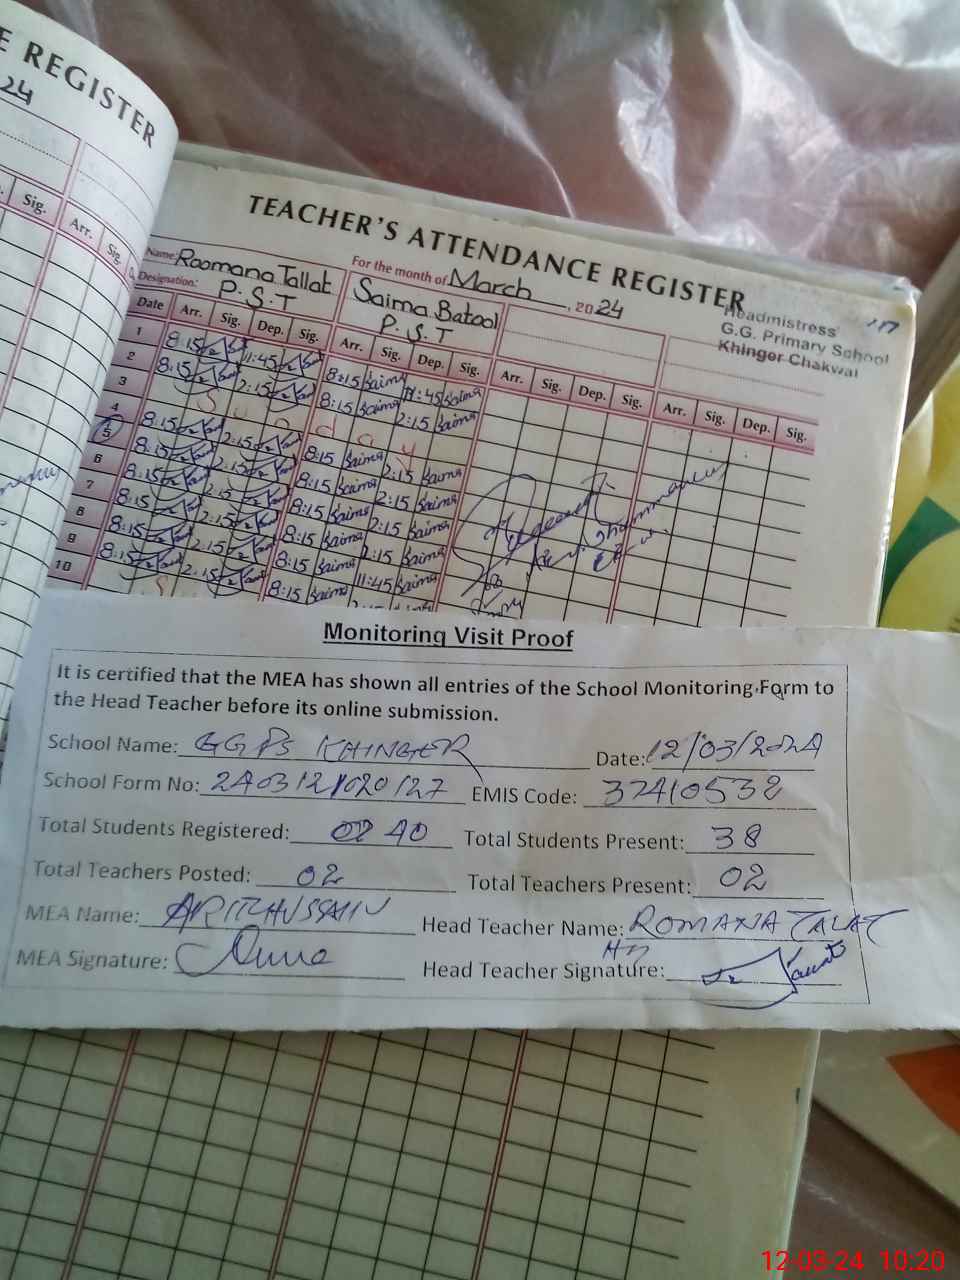 E REGISTER
24
Sig.
Arr.
Sig.
TEACHER'S ATTENDANCE REGISTER
Name: Roomana Tallat
For the month of March, 2024
Designation: P.S.T
Saima Batool
P.S.T
Headmistress
G.G. Primary School
Khinger Chakwal
Date Arr. Sig. Dep. Sig. Arr. Sig. Dep. Sig. Arr. Sig. Dep. Sig. Arr. Sig. Dep. Sig.
1 8:15 11:45 8:15 Saima 11:45 Saima
2 8:15 2:15 8:15 Saima 2:15 Saima
3 S u n d a y
4 8:15 2:15 8:15 Saima 2:15 Saima
5 8:15 2:15 8:15 Saima 2:15 Saima
6 8:15 2:15 8:15 Saima 2:15 Saima
7 8:15 2:15 8:15 Saima 2:15 Saima
8 8:15 2:15 8:15 Saima 11:45 Saima
9 8:15 2:15 8:15 Saima
10 S
Monitoring Visit Proof
It is certified that the MEA has shown all entries of the School Monitoring Form to
the Head Teacher before its online submission.
School Name: GGPS KHINGER Date: 12/03/2024
School Form No: 2403121020127 EMIS Code: 37410532
Total Students Registered: 40 Total Students Present: 38
Total Teachers Posted: 02 Total Teachers Present: 02
MEA Name: Head Teacher Name: ROMANA TALAT
MEA Signature: Head Teacher Signature:
12-03-24 10:20